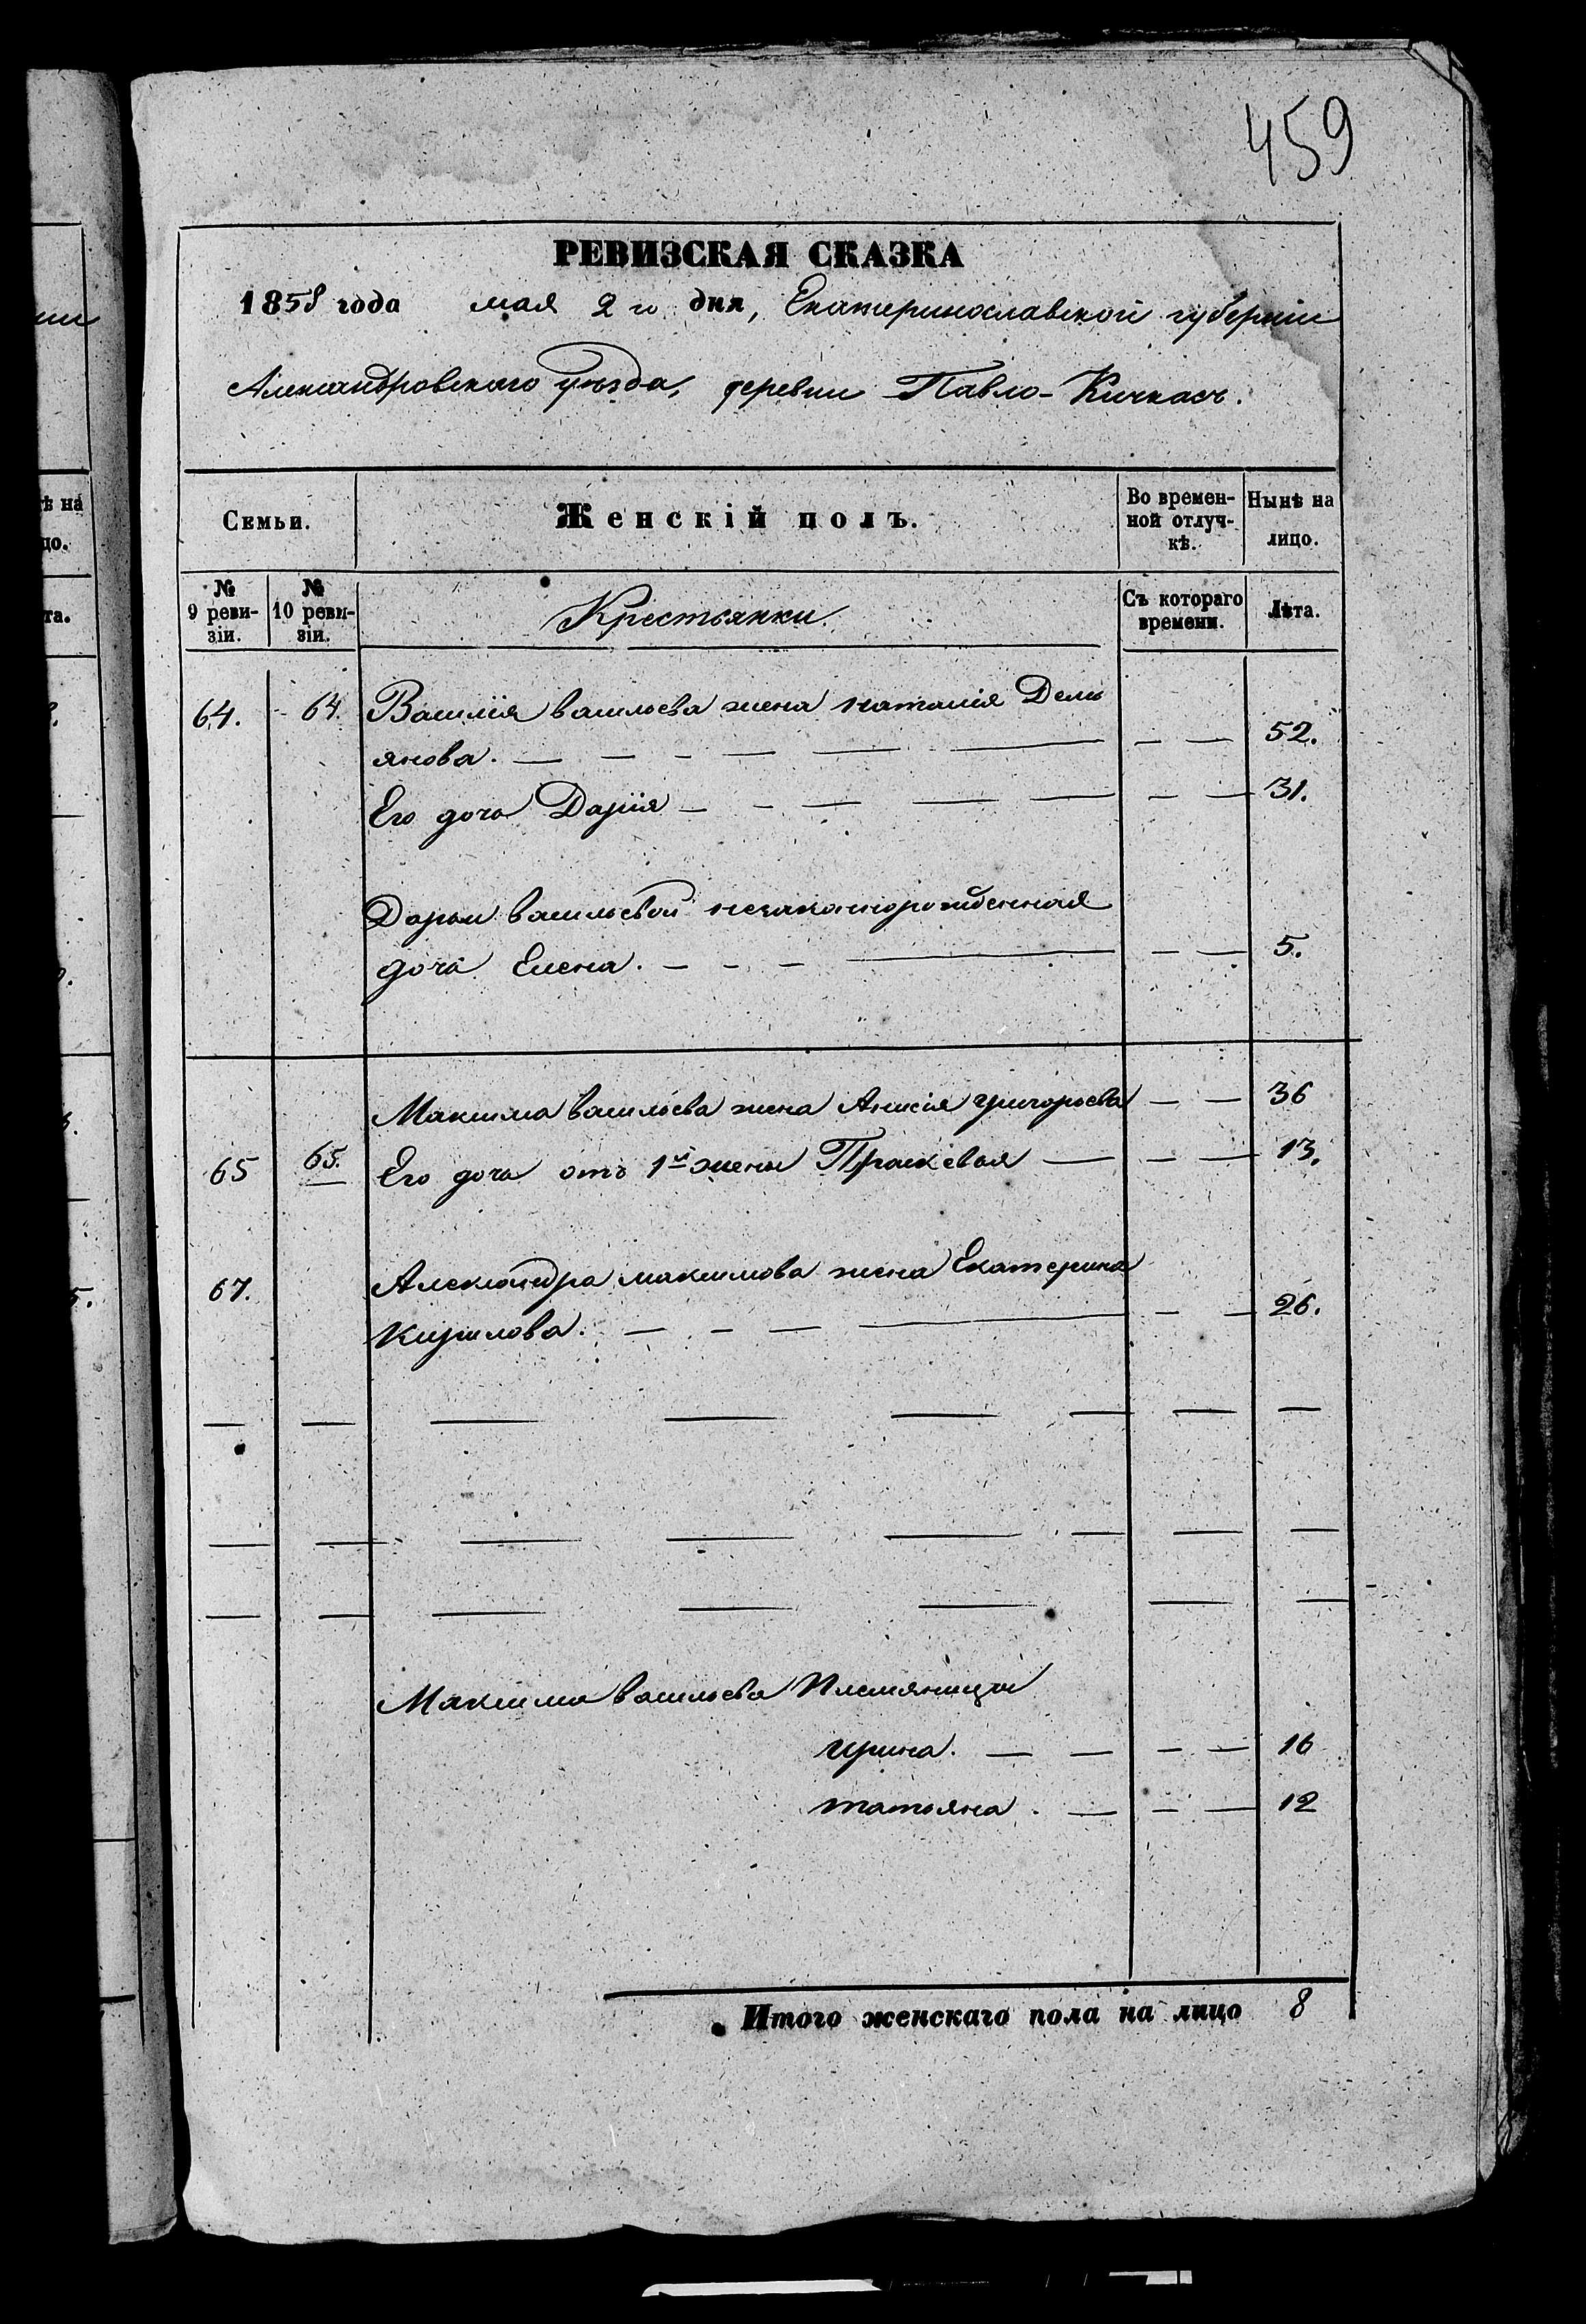 459
РЕВИЗСКАЯ СКАЗКА
1858 года мая 2 го дня, Екатеринославской губерніи
Александровскаго уезда, деревни Павло-Кичкасъ.
Семьи.
Женскій полъ.
Во времен-
ной отлуч-
кѣ.
Нынѣ на
лицо.
№
9 реви-
зіи.
№
10 реви-
зіи.
Крестьянки
Съ котораго
времени.
Лѣта.
64. 64. Василія васильева жена наталія Демь
янова. 52.
Его дочь Дарія 31.
Дарьи васильевой незаконнорожденная
дочь Елена. 5.
Максима васильева жена Анисія григорьева 36
65 65. Его дочь отъ 1й жены Праскевья 13.
67. Александра максимова жена Екатерина
Кирилова. 26.
Максима васильева Племяницы
ирина. 16
татьяна. 12
Итого женскаго пола на лицо 8
ѣ на
цо.
та.